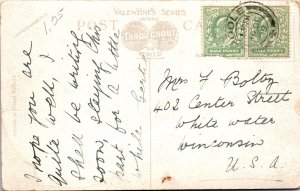 1.25
VALENTINE'S SERIES
POST CARD
HALF PENNY
HALF PENNY
I hope you are
quite well, I
shall be writing
soon, staying this
rest for a little
while
Mrs F Bolby
402 Center Street
White Water
Winconsin
U.S.A